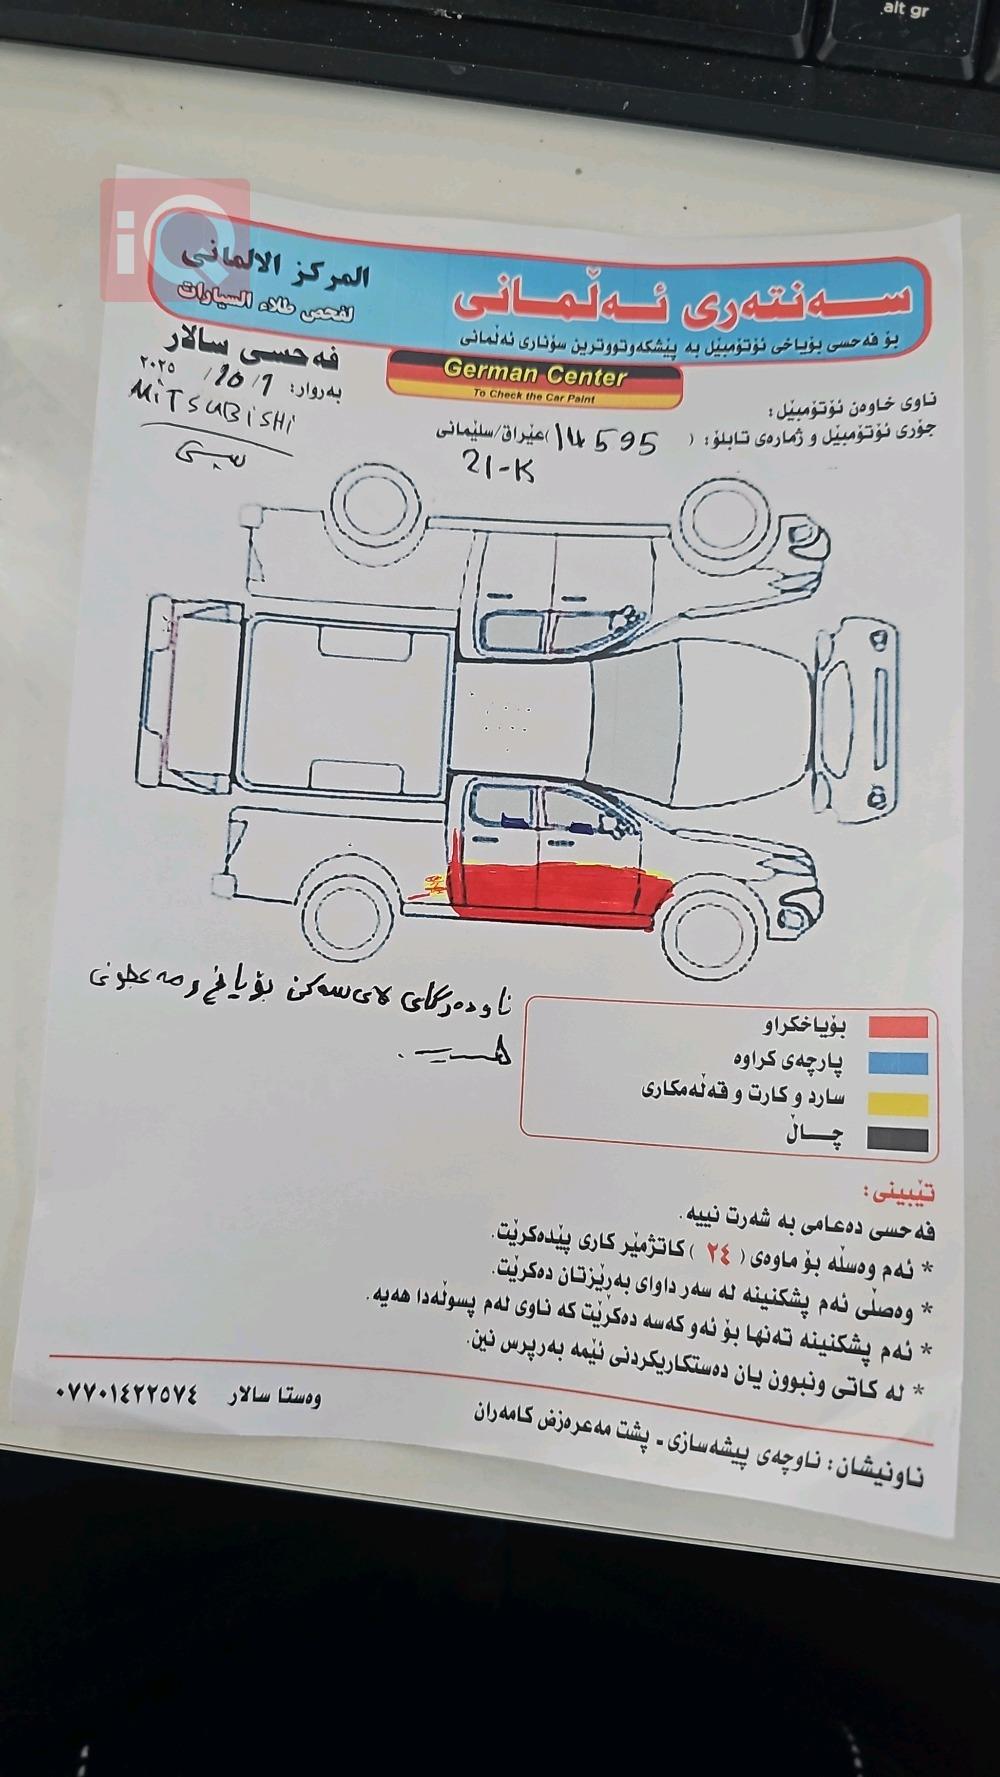 alt gr
iQ
سەنتەری ئەڵمانی
المركز الالماني
لفحص طلاء السيارات
بۆ فەحسی بۆیاخی ئۆتۆمبێل بە پێشکەوتووترین سۆناری ئەڵمانی
German Center
To Check the Car Paint
فەحسی سالار
بەروار: ٢٠٢٥ /10/1
MiTSUBiSHi
سپی
ناوی خاوەن ئۆتۆمبێل:
جۆری ئۆتۆمبێل و ژمارەی تابلۆ: ( 14595 )عێراق/سلێمانی
21-K
ناودەرگای لای سەکن بۆیاخ و مەعجونی
هەیە.
بۆیاخکراو
پارچەی کراوە
سارد و کارت و قەڵەمکاری
چاڵ
تێبینی:
فەحسی دەعامی بە شەرت نییە.
* ئەم وەسڵە بۆ ماوەی ( ٢٤ ) کاتژمێر کاری پێدەکرێت.
* وەصڵی ئەم پشکنینە لە سەر داوای بەڕێزتان دەکرێت.
* ئەم پشکنینە تەنها بۆ ئەو کەسە دەکرێت کە ناوی لەم پسوڵەدا هەیە.
* لە کاتی ونبوون یان دەستکاریکردنی ئێمە بەرپرس نین.
وەستا سالار ٠٧٧٠١٤٢٢٥٧٤
ناونیشان: ناوچەی پیشەسازی - پشت مەعرەزض کامەران